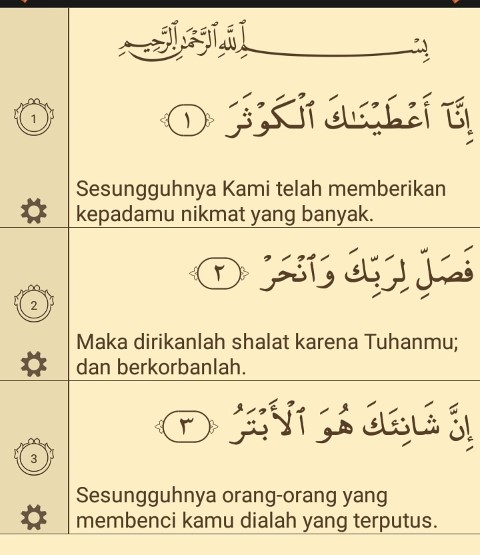 بِسْــــــمِ ٱللَّهِ ٱلرَّحْمَٰنِ ٱلرَّحِيمِ
1
إِنَّآ أَعْطَيْنَٰكَ ٱلْكَوْثَرَ ١
Sesungguhnya Kami telah memberikan
kepadamu nikmat yang banyak.
2
فَصَلِّ لِرَبِّكَ وَٱنْحَرْ ٢
Maka dirikanlah shalat karena Tuhanmu;
dan berkorbanlah.
3
إِنَّ شَانِئَكَ هُوَ ٱلْأَبْتَرُ ٣
Sesungguhnya orang-orang yang
membenci kamu dialah yang terputus.